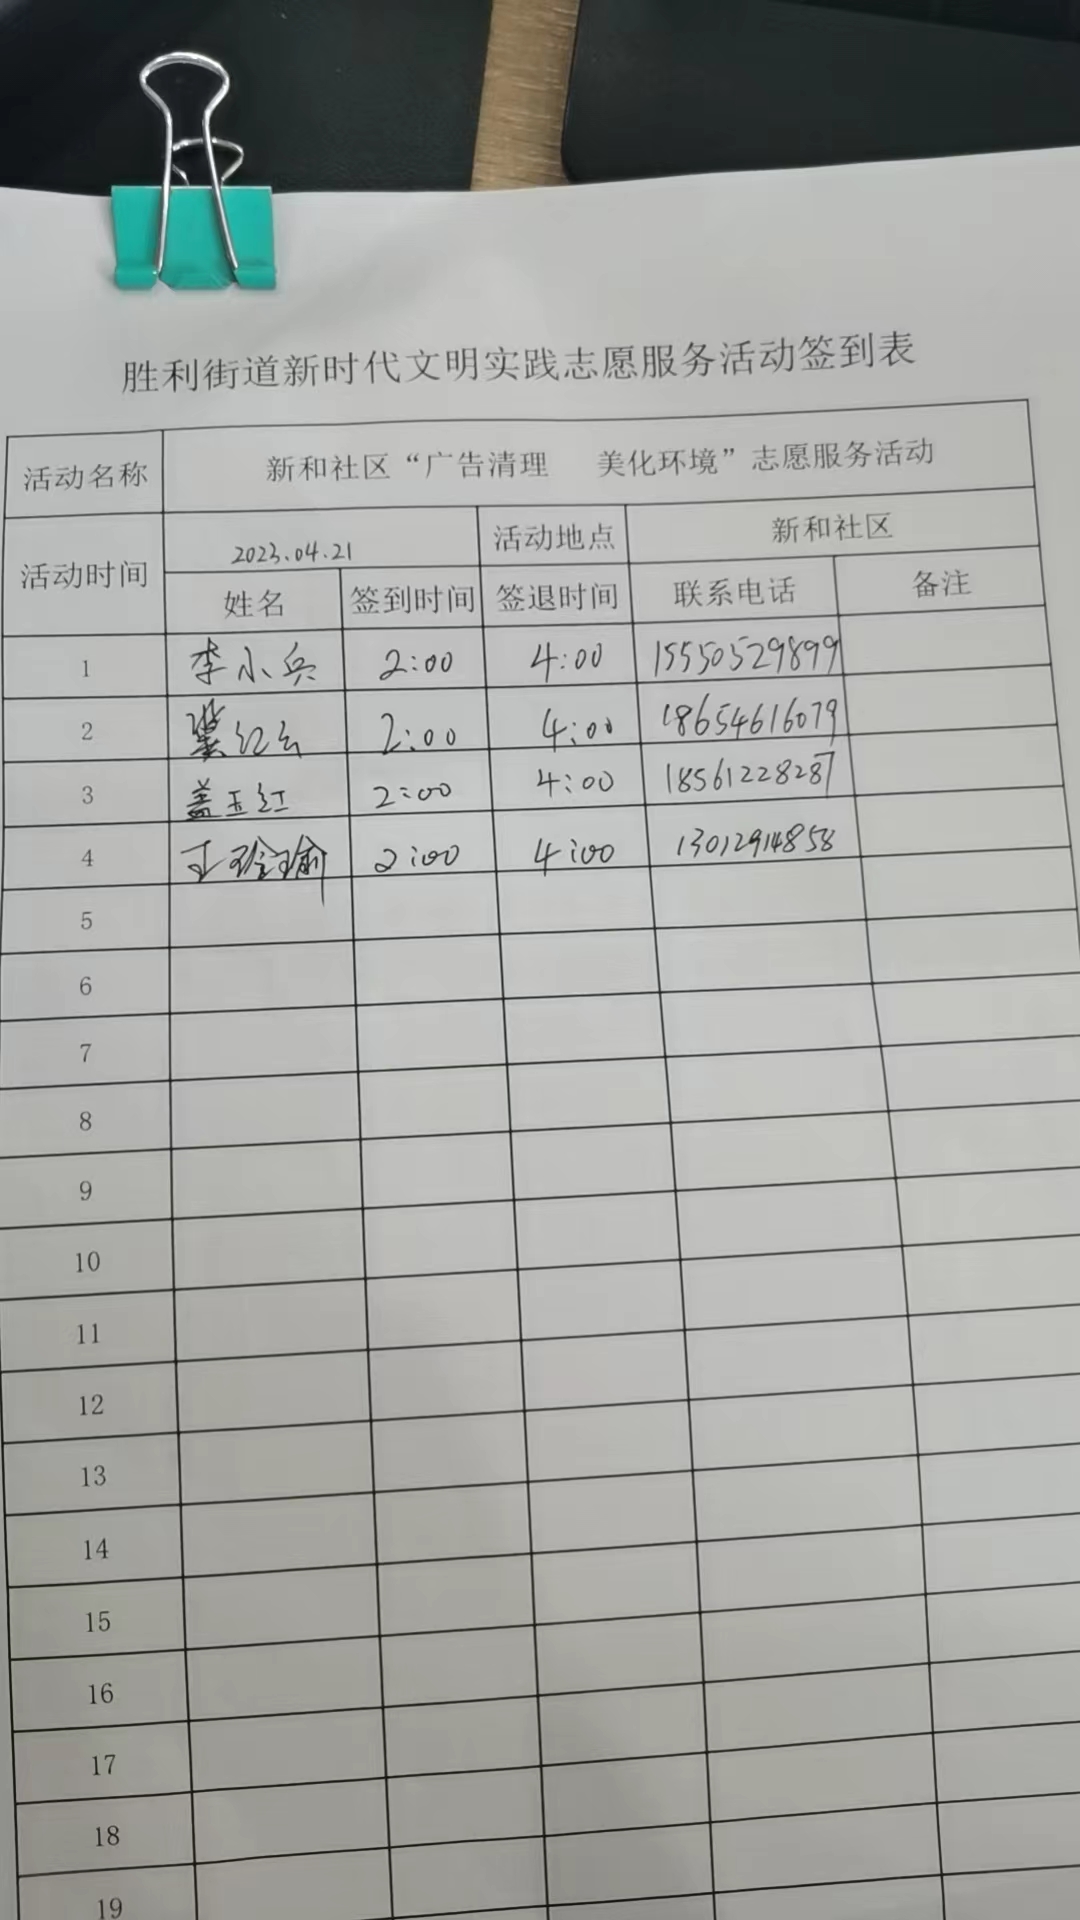 胜利街道新时代文明实践志愿服务活动签到表
活动名称 新和社区“广告清理 美化环境”志愿服务活动
活动时间 2023.04.21 活动地点 新和社区
姓名 签到时间 签退时间 联系电话 备注
1 李小兵 2:00 4:00 15550529899
2 红云 2:00 4:00 18654616079
3 盖玉红 2:00 4:00 18561228287
4 王瑜 2:00 4:00 13012914858
5
6
7
8
9
10
11
12
13
14
15
16
17
18
19